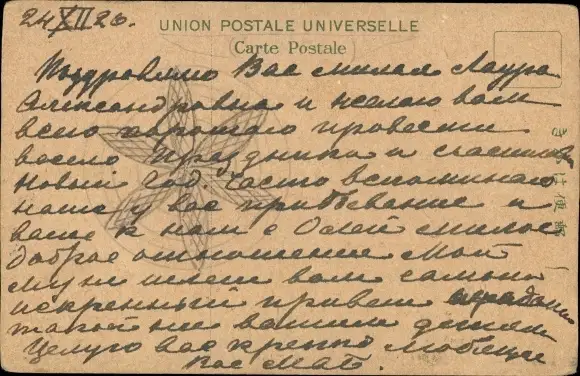 24/XII 26.
UNION POSTALE UNIVERSELLE
Carte Postale
Поздравляю Вас милая Лаура
Александровна и желаю вам
всего хорошего провести
весело праздники и счастливо
новый год. Часто вспоминаю
наше у вас прибывание и
ваше к нам с Олей милое
доброе отношение Мой
муж шлет вам самый
искренный привет
такой же вашим детям
Целую вас крепко любящ
Вас